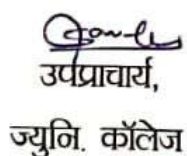 उपप्राचार्य,
ज्युनि. कॉलेज